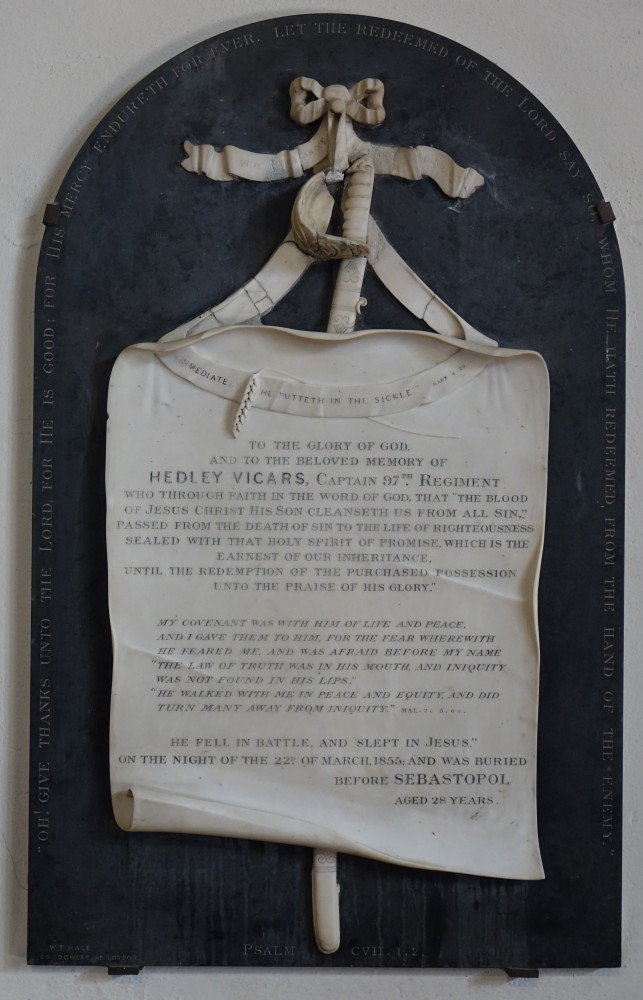 "OH! GIVE THANKS UNTO THE LORD, FOR HE IS GOOD: FOR HIS MERCY ENDURETH FOR EVER. LET THE REDEEMED OF THE LORD SAY SO, WHOM HE HATH REDEEMED FROM THE HAND OF THE ENEMY."
MMEDIATE. HE "UTTETH IN THE SICKLE" MARK 4. 29
TO THE GLORY OF GOD,
AND TO THE BELOVED MEMORY OF
HEDLEY VICARS, CAPTAIN 97TH REGIMENT
WHO THROUGH FAITH IN THE WORD OF GOD, THAT "THE BLOOD
OF JESUS CHRIST HIS SON CLEANSETH US FROM ALL SIN,"
PASSED FROM THE DEATH OF SIN TO THE LIFE OF RIGHTEOUSNESS
SEALED WITH THAT HOLY SPIRIT OF PROMISE, WHICH IS THE
EARNEST OF OUR INHERITANCE,
UNTIL THE REDEMPTION OF THE PURCHASED POSSESSION
UNTO THE PRAISE OF HIS GLORY."
MY COVENANT WAS WITH HIM OF LIFE AND PEACE,
AND I GAVE THEM TO HIM, FOR THE FEAR WHEREWITH
HE FEARED ME, AND WAS AFRAID BEFORE MY NAME
"THE LAW OF TRUTH WAS IN HIS MOUTH, AND INIQUITY
WAS NOT FOUND IN HIS LIPS."
"HE WALKED WITH ME IN PEACE AND EQUITY, AND DID
TURN MANY AWAY FROM INIQUITY." MAL.
HE FELL IN BATTLE, AND "SLEPT IN JESUS,"
ON THE NIGHT OF THE 22D OF MARCH, 1855; AND WAS BURIED
BEFORE SEBASTOPOL,
AGED 28 YEARS.
W. T. HALL
LONDON
PSALM CVII. 1, 2.